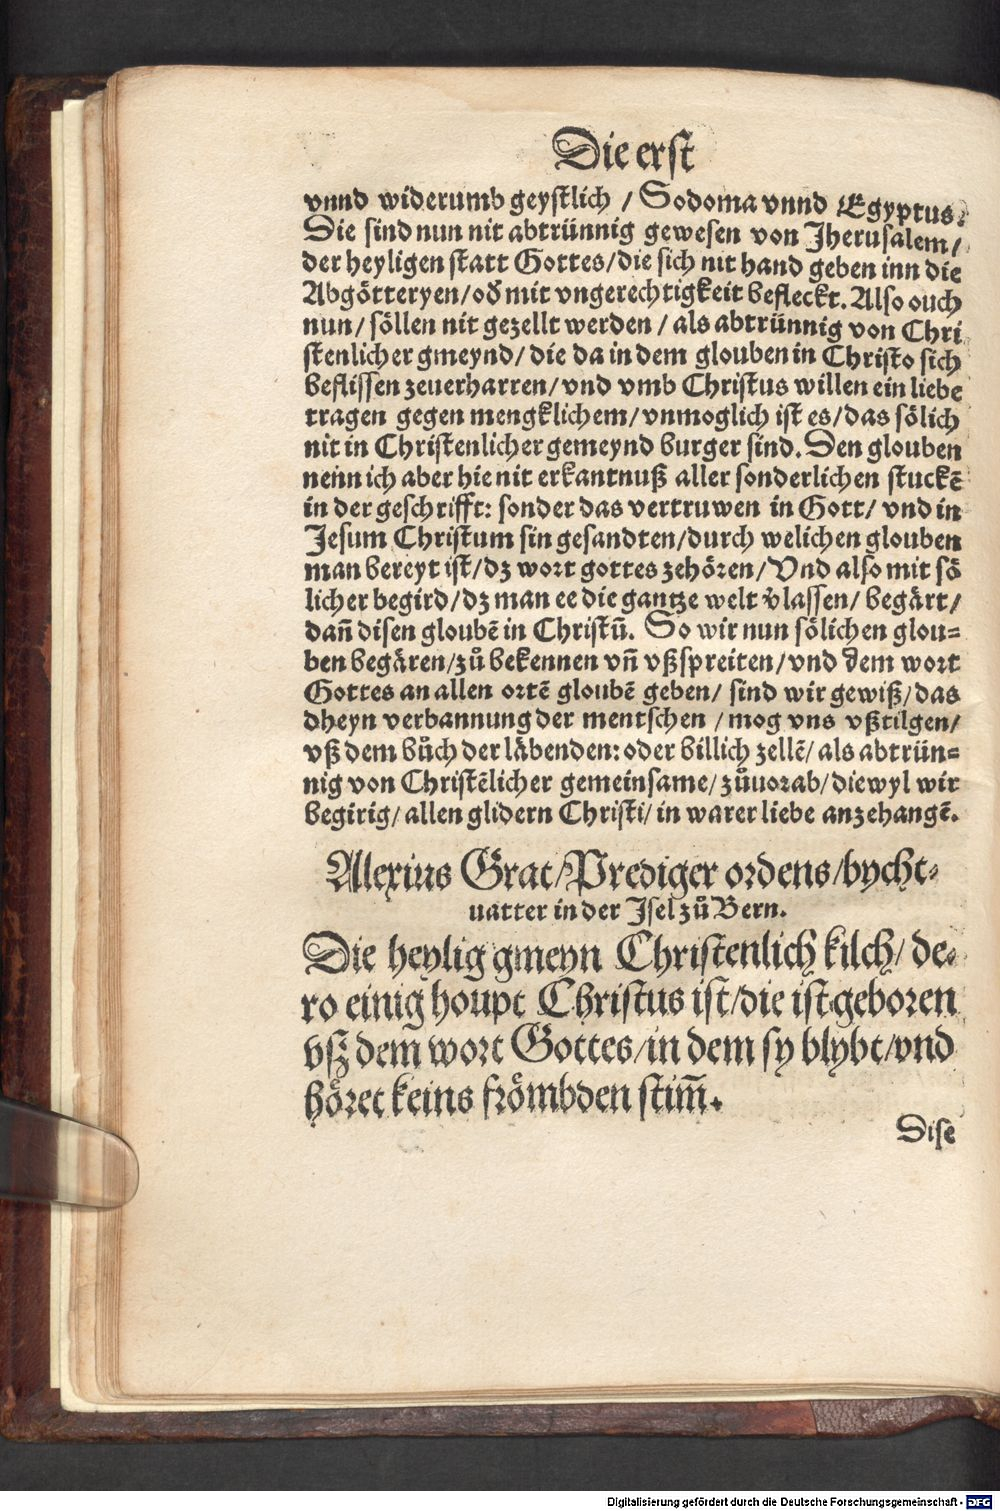 Die erst
vnnd widerumb geystlich / Sodoma vnnd Egyptus.
Die sind nun nit abtrünnig gewesen von Jherusalem/
der heyligen statt Gottes/die sich nit hand geben inn die
Abgötteryen/oď mit vngerechtigkeit befleckt. Also ouch
nun/ söllen nit gezellt werden / als abtrünnig von Chri
stenlicher gmeynd/ die da in dem glouben in Christo sich
beflissen zeuerharren/ vnd vmb Christus willen ein liebe
tragen gegen mengklichem/ vnmoglich ist es/das sölich
nit in Christenlicher gemeynd burger sind. Den glouben
nenn ich aber hie nit erkantnuß aller sonderlichen stuckē
in der geschrifft: sonder das vertruwen in Gott/ vnd in
Jesum Christum sin gesandten/durch welichen glouben
man bereyt ist/dz wort gottes zehören/ Vnd also mit sö
licher begird/dz man ee die gantze welt v̌lassen/ begärt/
dañ disen gloubē in Christū. So wir nun sölichen glou=
ben begären/zů bekennen vñ vßspreiten/vnd dem wort
Gottes an allen ortē gloubē geben/ sind wir gewiß/das
dheyn verbannung der mentschen / mog vns vßtilgen/
vß dem bůch der läbenden: oder billich zellē/ als abtrün=
nig von Christēlicher gemeinsame/ zůuorab/ diewyl wir
begirig/ allen glidern Christi/ in warer liebe anzehangē.
Alexius Grat/Prediger ordens/bycht=
uatter in der Jsel zů Bern.
Die heylig gmeyn Christenlich kilch/ de=
ro einig houpt Christus ist/die ist geboren
vß dem wort Gottes/in dem sy blybt/vnd
höret keins frömbden stim̄.
Dise
Digitalisierung gefördert durch die Deutsche Forschungsgemeinschaft - DFG